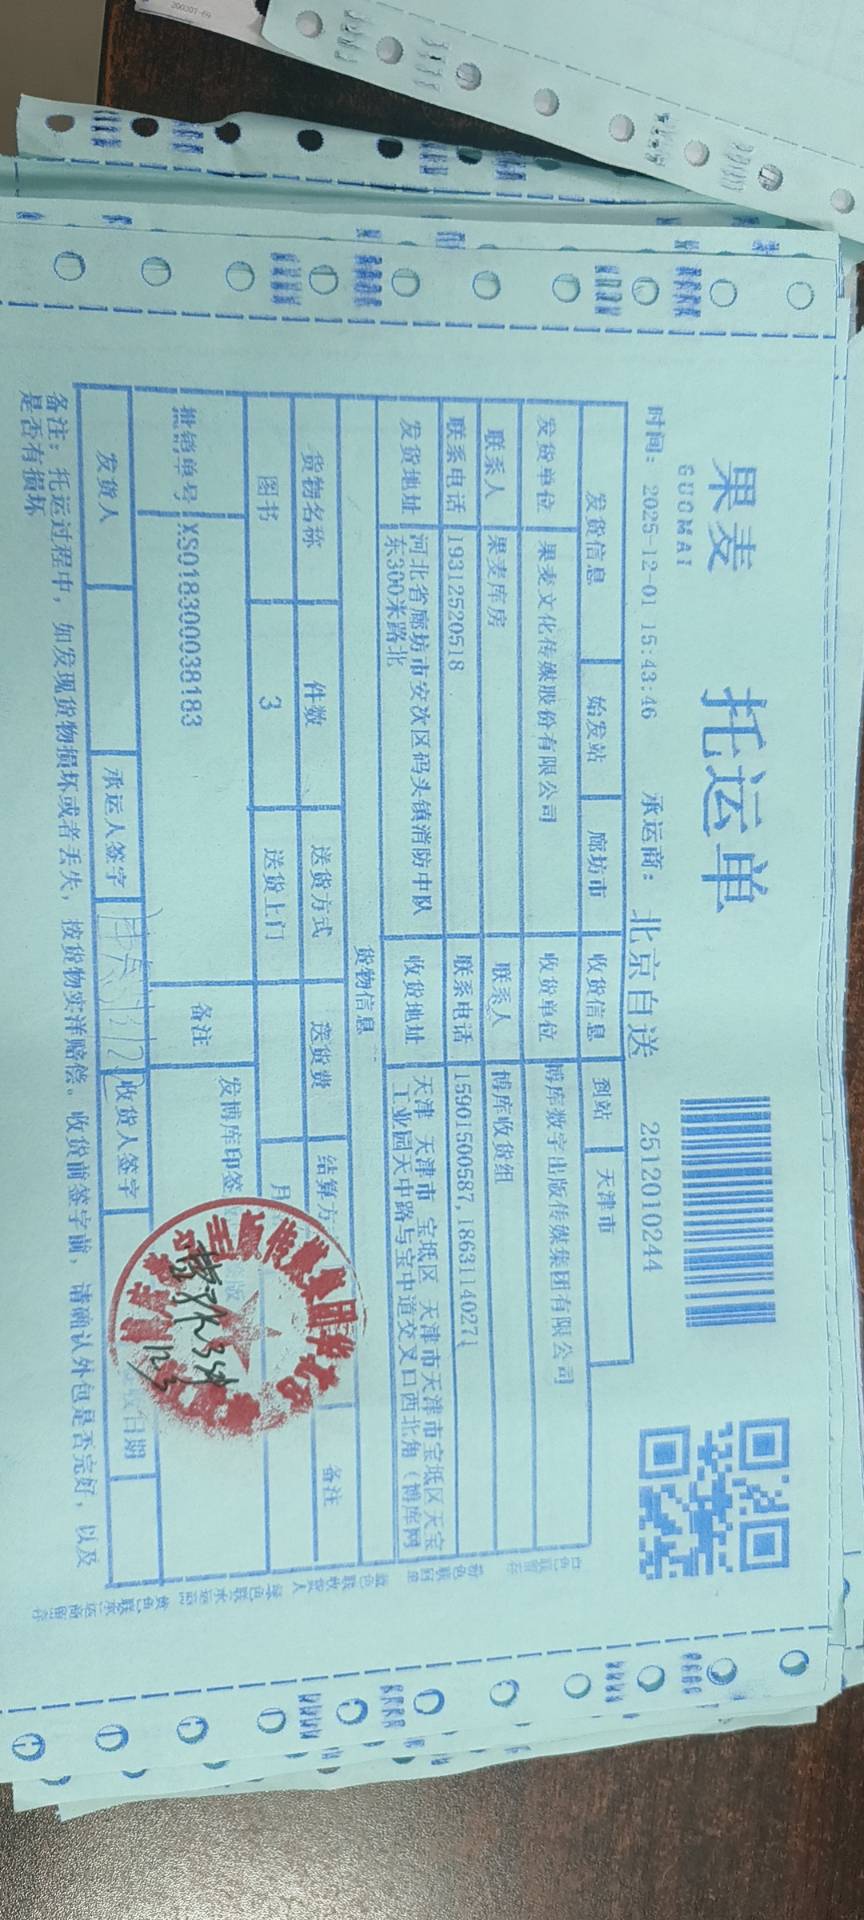 果麦
GUOMAI
托运单
时间: 2025-12-01 15:43:46 承运商: 北京自送 2512010244
发货信息 始发站 廊坊市 收货信息 到站 天津市
发货单位 果麦文化传媒股份有限公司 收货单位 博库数字出版传媒集团有限公司
联系人 果麦库房 联系人 博库收货组
联系电话 19312520518 联系电话 15901500587,18631140271
发货地址 河北省廊坊市安次区码头镇消防中队东300米路北 收货地址 天津 天津市 宝坻区 天津市天津市宝坻区天宝工业园天中路与宝中道交叉口西北角（博库网
货物信息
货物名称 件数 送货方式 送货费 结算方 备注
图书 3 送货上门 月
批销单号 XS018300038183 备注 发博库印签
发货人 承运人签字 收货人签字 日期
12.3
备注: 托运过程中，如发现货物损坏或者丢失，按货物实洋赔偿。收货前签字前，请确认外包是否完好，以及
是否有损坏